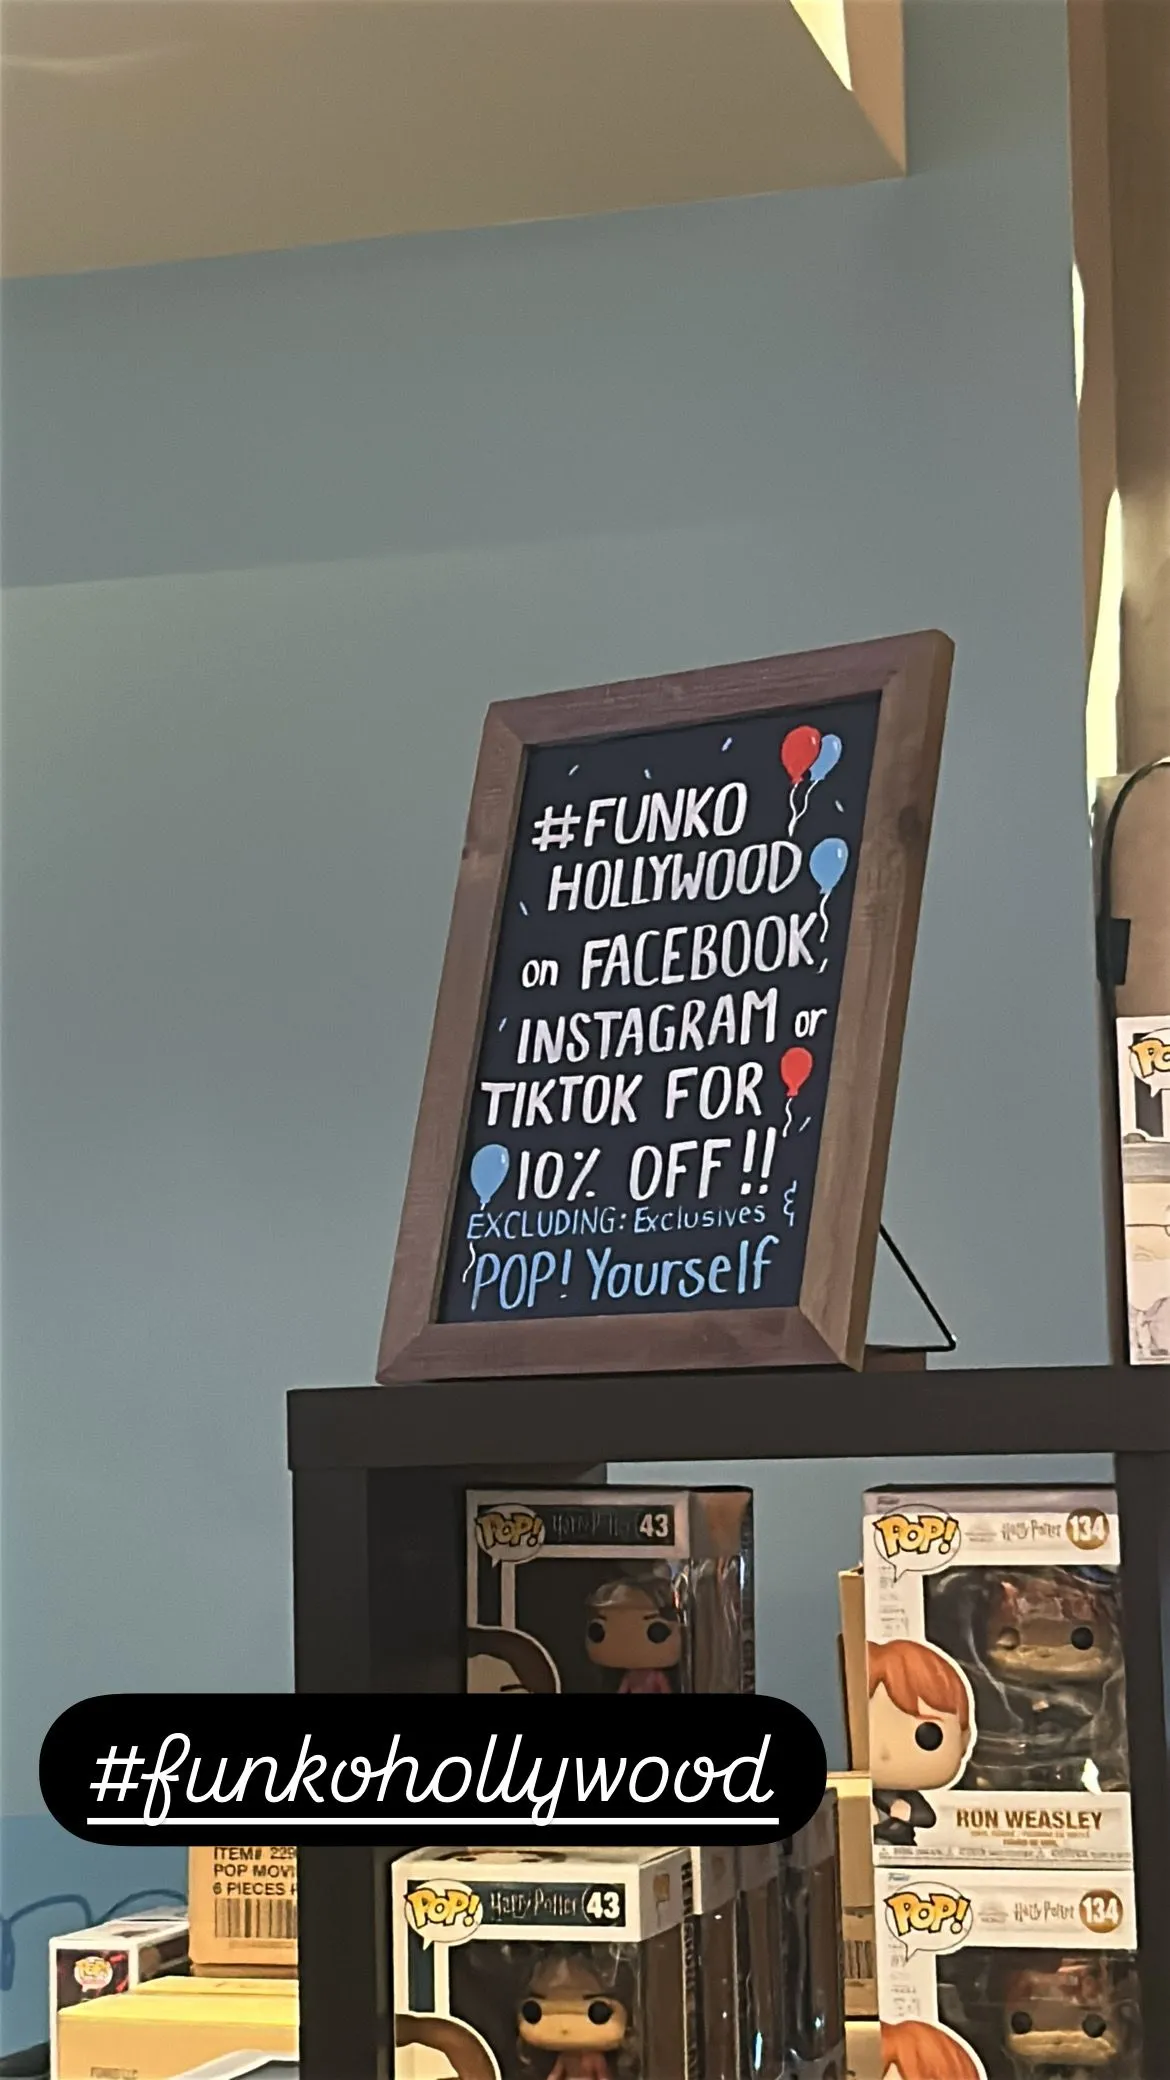 #FUNKO
HOLLYWOOD
on FACEBOOK,
INSTAGRAM or
TIKTOK FOR
10% OFF!!
EXCLUDING: Exclusives &
POP! Yourself
POP! Harry Potter 43
POP! Harry Potter 134
#funkohollywood
RON WEASLEY
ITEM# 229
POP MOVI
6 PIECES
POP! Harry Potter 43
POP! Harry Potter 134
POP!